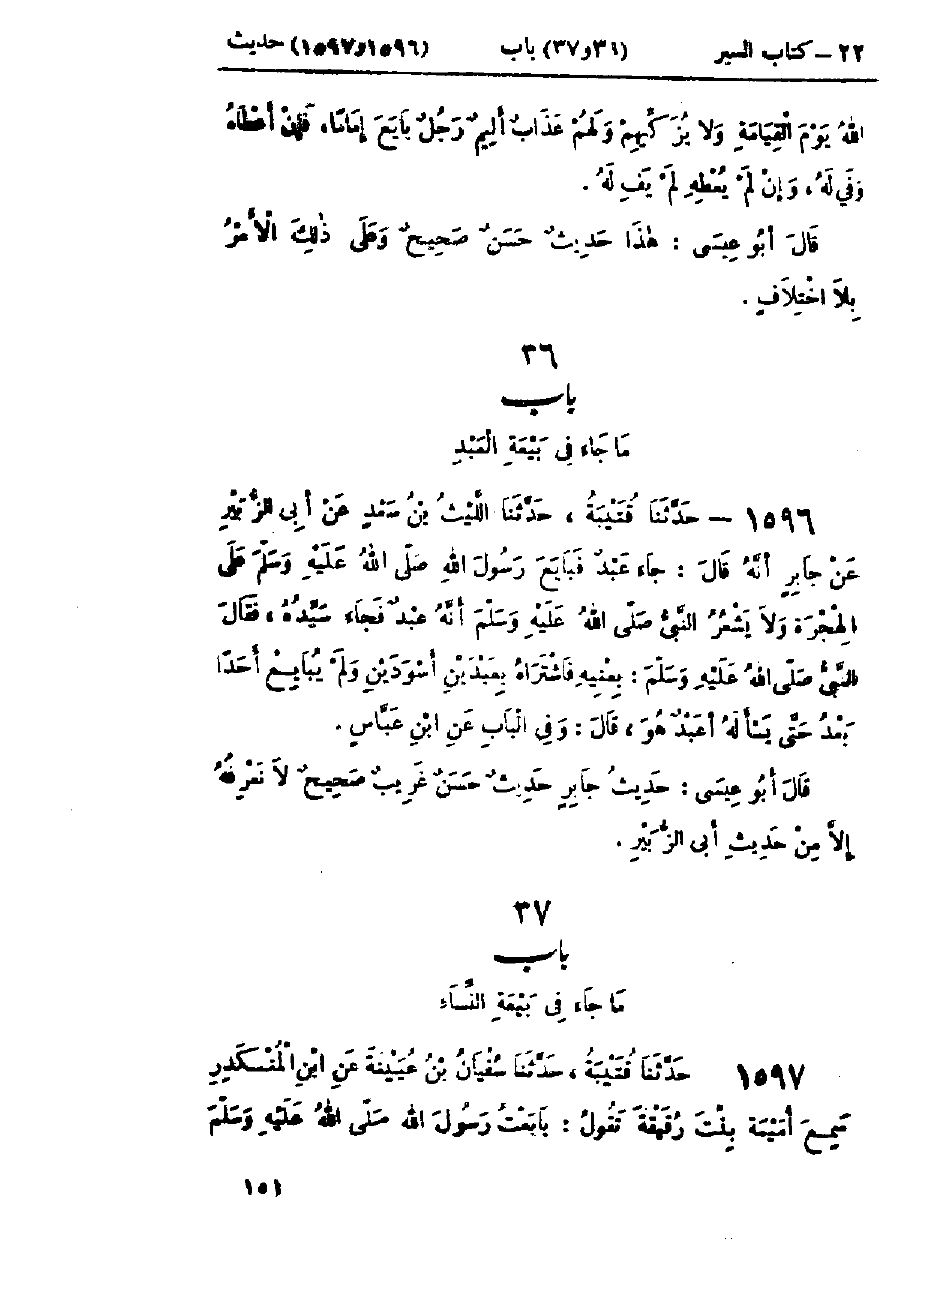 ٢٢ – كتاب السير (٣٦و٣٧) باب (١٥٩٦و١٥٩٧) حديث
اللهُ يَوْمَ الْقِيَامَةِ وَلَا يُزَكِّيهِمْ وَلَهُمْ عَذَابٌ أَلِيمٌ رَجُلٌ بَايَعَ إِمَامًا، فَإِنْ أَعْطَاهُ
وَفَى لَهُ، وَإِنْ لَمْ يُعْطِهِ لَمْ يَفِ لَهُ .
قَالَ أَبُو عِيسَى : هٰذَا حَدِيثٌ حَسَنٌ صَحِيحٌ وَعَلَى ذٰلِكَ الْأَمْرُ
بِلاَ اخْتِلاَفٍ .
٣٦
باب
مَا جَاء فِى بَيْعَةِ الْعَبْدِ
١٥٩٦ – حَدَّثَنَا قُتَيْبَةُ ، حَدَّثَنَا اللَّيْثُ بْنُ سَعْدٍ عَنْ أَبِى الزُّبَيْرِ
عَنْ جَابِرٍ أَنَّهُ قَالَ : جَاء عَبْدٌ فَبَايَعَ رَسُولَ اللهِ صَلَّى اللهُ عَلَيْهِ وَسَلَّمَ عَلَى
الْهِجْرَةِ وَلاَ يَشْعُرُ النَّبِىُّ صَلَّى اللهُ عَلَيْهِ وَسَلَّمَ أَنَّهُ عَبْدٌ فَجَاء سَيِّدُهُ ، فَقَالَ
النَّبِىُّ صَلَّى اللهُ عَلَيْهِ وَسَلَّمَ : بِعْنِيهِ فَاشْتَرَاهُ بِعَبْدَيْنِ أَسْوَدَيْنِ وَلَمْ يُبَايِعْ أَحَدًا
بَعْدُ حَتَّى يَسْأَلَهُ أَعَبْدٌ هُوَ ، قَالَ : وَفِى الْبَابِ عَنِ ابْنِ عَبَّاسٍ .
قَالَ أَبُو عِيسَى : حَدِيثُ جَابِرٍ حَدِيثٌ حَسَنٌ غَرِيبٌ صَحِيحٌ لاَ نَعْرِفُهُ
إِلاَّ مِنْ حَدِيثِ أَبِى الزُّبَيْرِ .
٣٧
باب
مَا جَاء فِى بَيْعَةِ النِّسَاءِ
١٥٩٧ حَدَّثَنَا قُتَيْبَةُ ، حَدَّثَنَا سُفْيَانُ بْنُ عُيَيْنَةَ عَنِ ابْنِ الْمُنْكَدِرِ
سَمِعَ أُمَيْمَةَ بِنْتَ رُقَيْقَةَ تَقُولُ : بَايَعْتُ رَسُولَ اللهِ صَلَّى اللهُ عَلَيْهِ وَسَلَّمَ
١٥١